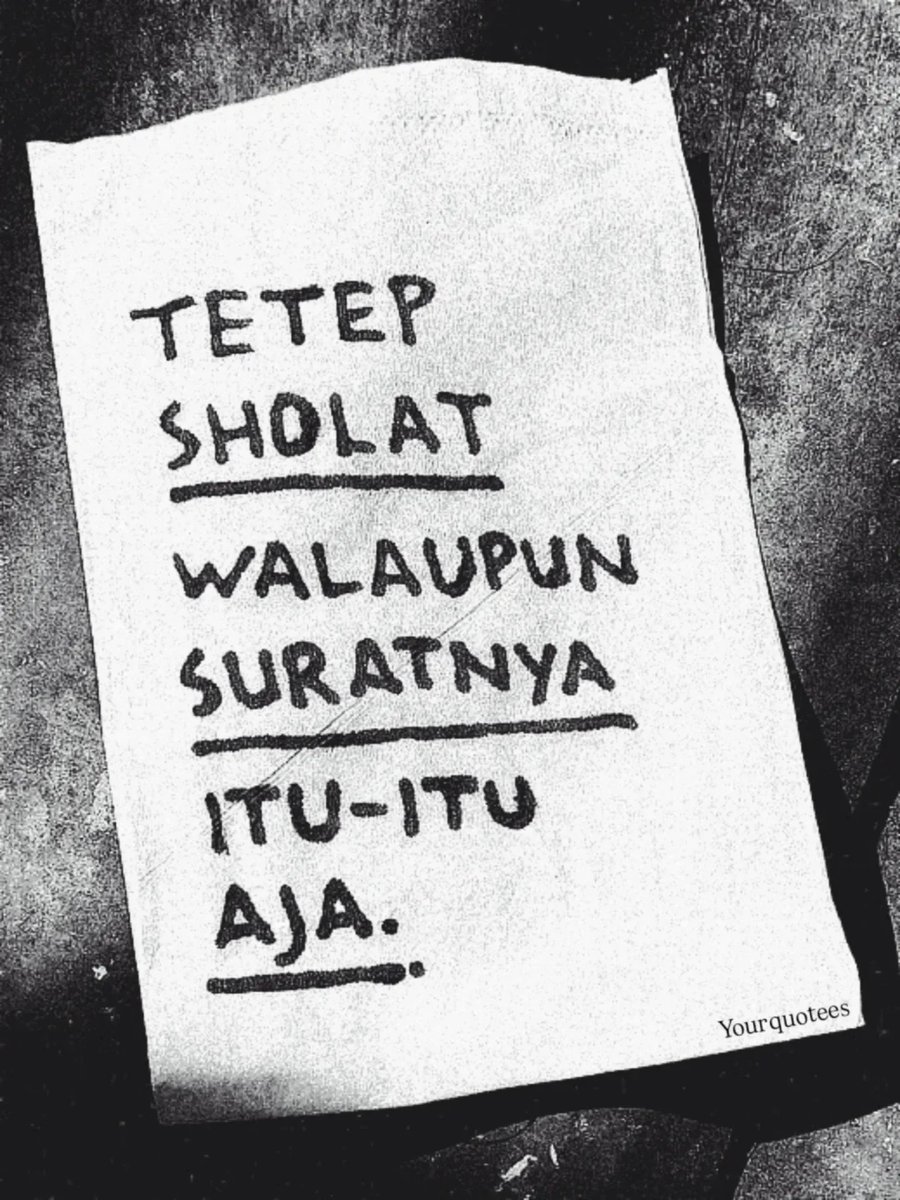 TETEP
SHOLAT
WALAUPUN
SURATNYA
ITU-ITU
AJA.
Yourquotees